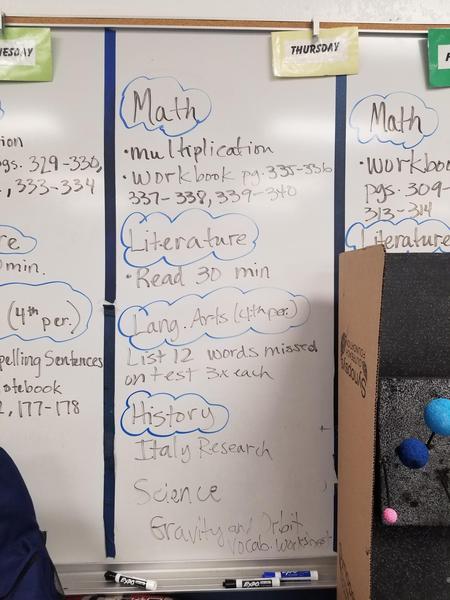 ESDAY
THURSDAY
F
ion
pgs. 329-330,
, 333-334
re
min.
(4th per.)
pelling Sentences
otebook
, 177-178
Math
• multiplication
• Workbook pg. 335-336
337-338, 339-340
Literature
• Read 30 min
Lang. Arts (4th per.)
List 12 words missed
on test 3x each
History
Italy Research
Science
Gravity and Orbit
Vocab. Worksheet
Math
• Workboo
pgs. 309-
313-314
Literature
EXPO
EXPO
EXPO